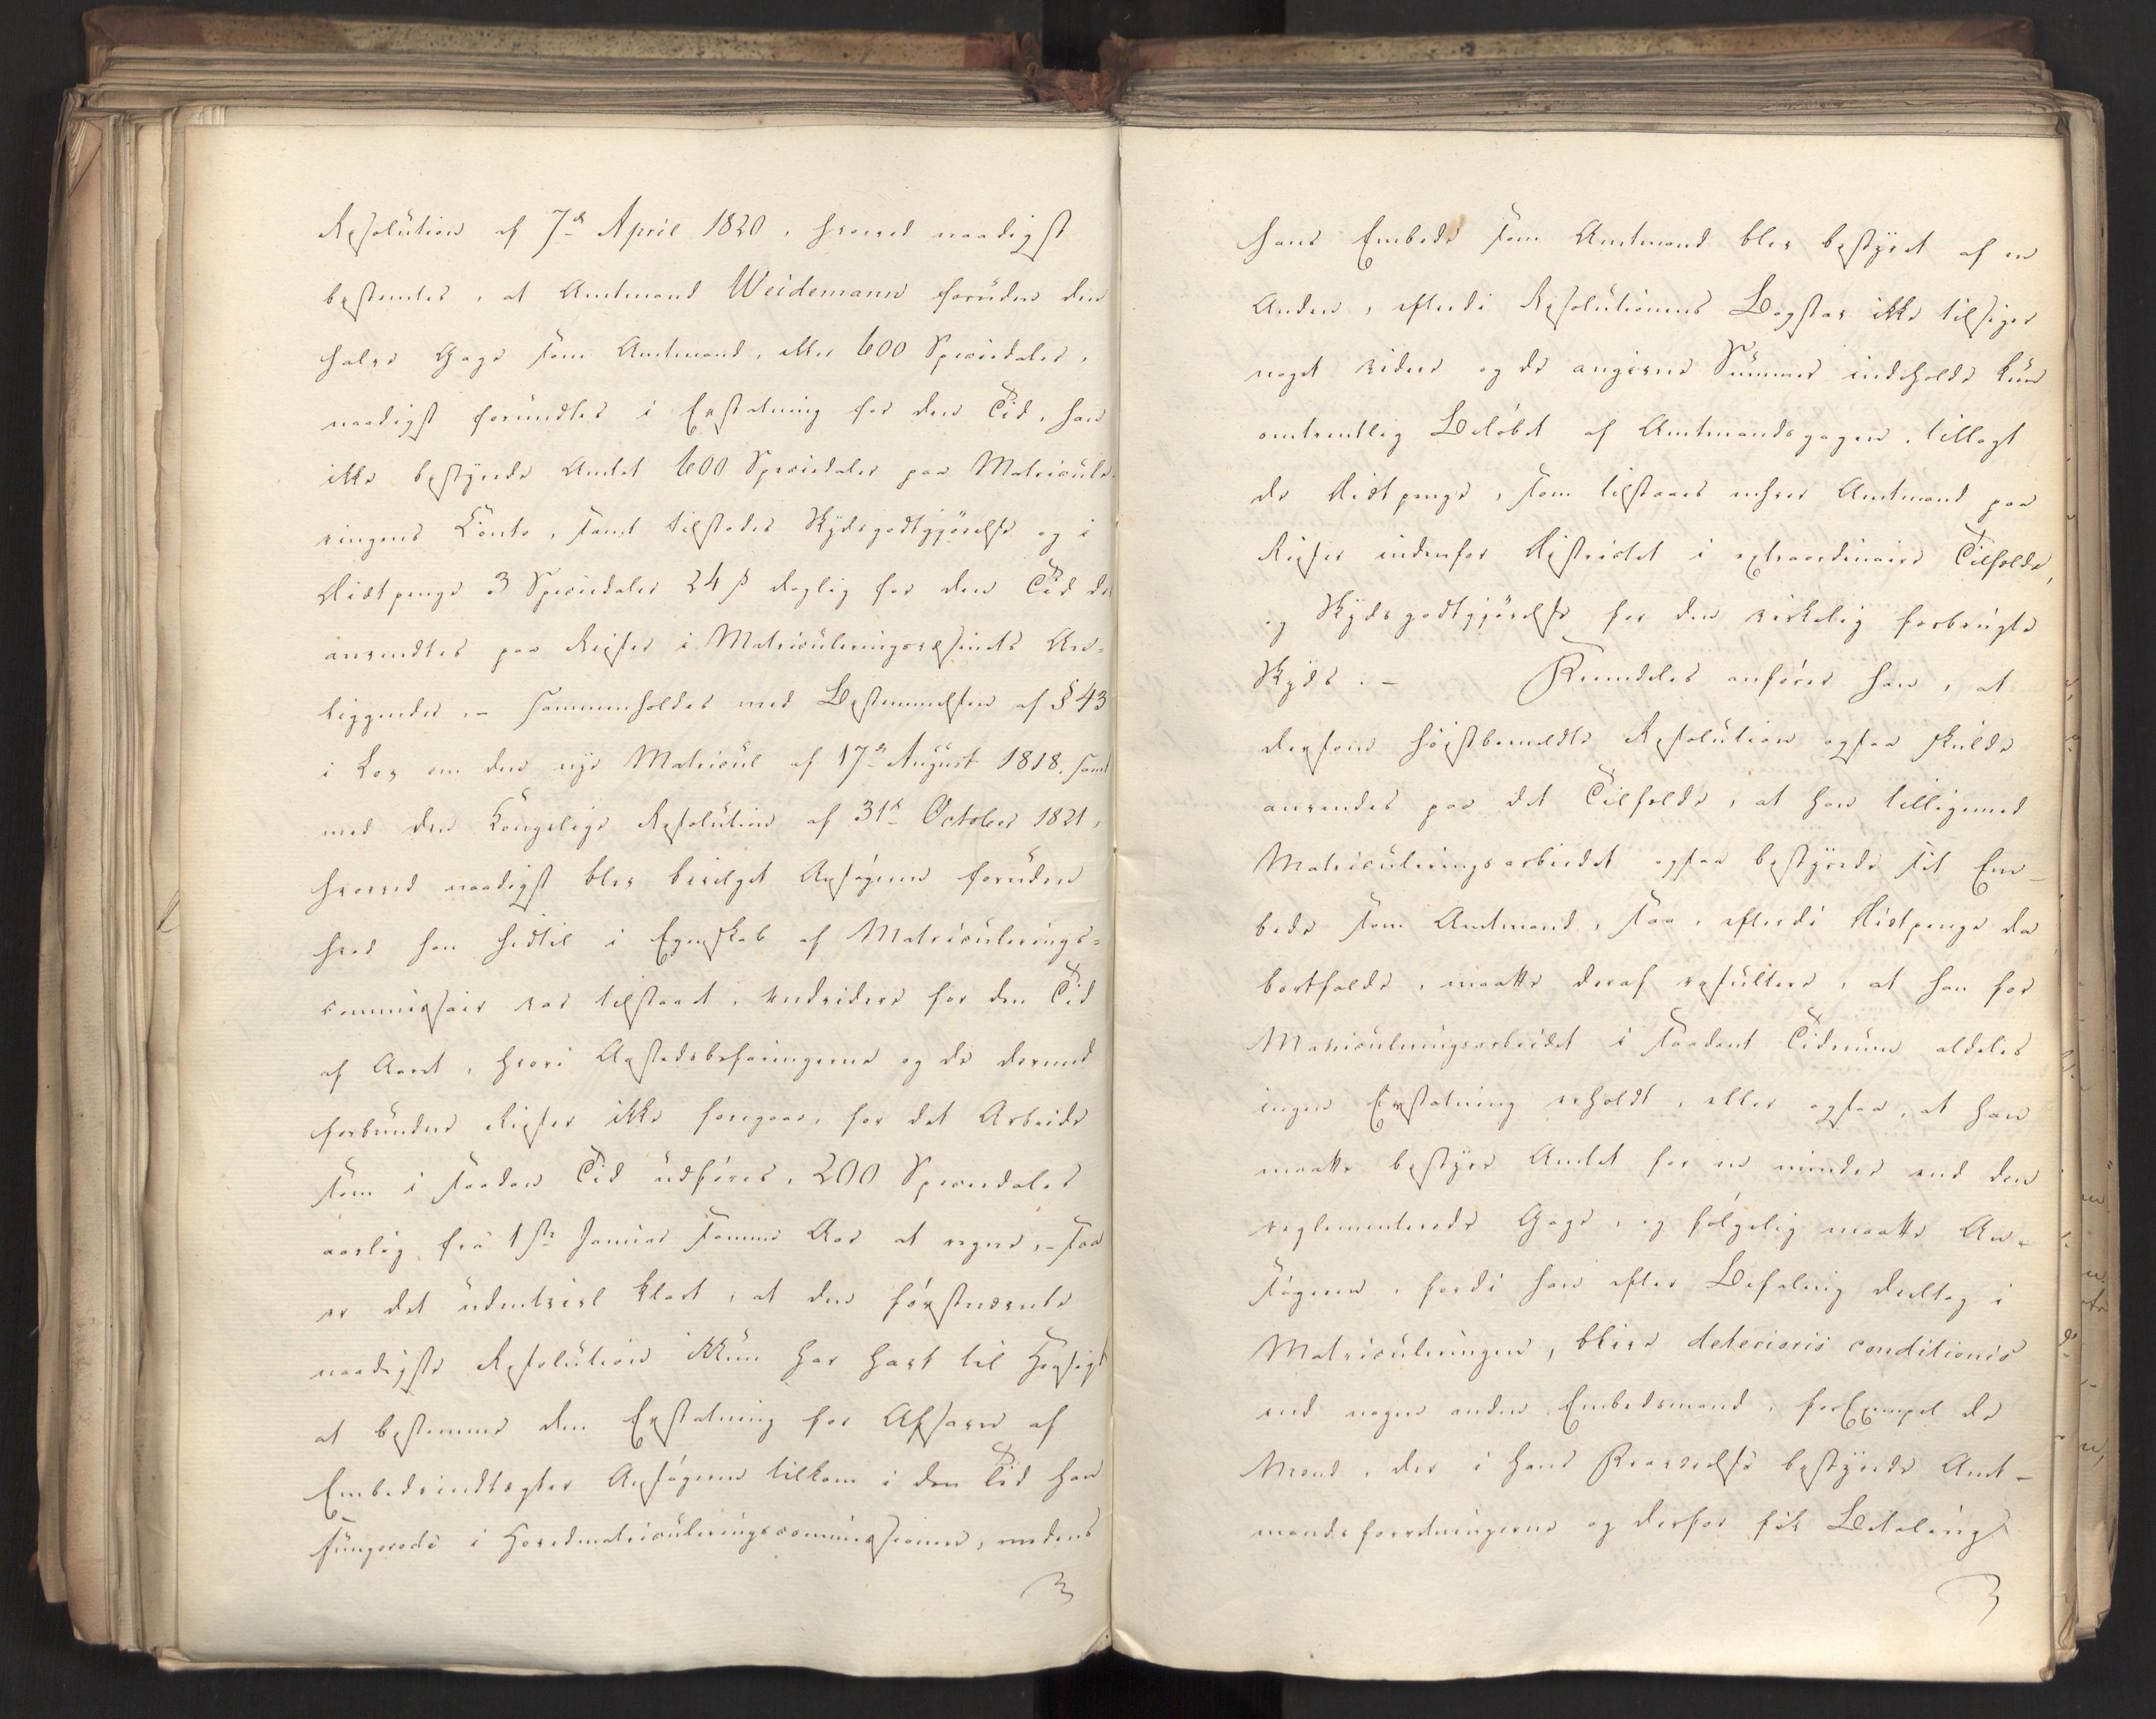 Resolution af 7de April 1820, hvorved naadigst
bestemtes, at Amtmand Weidemann foruden den
halve Gage som Amtmand, eller 600 Speciedaler,
naadigst forundtes i Erstatning for den Tid, han
ikke bestyrede Amtet 600 Speciedaler paa Matricule-
ringens Conto, samt tilstodes Skydsgodtgjörelse og i
Diætpenge 3 Speciedaler 24 s daglig for den Tid der
anvendtes paa Reiser i Matriculeringsvæsenets An-
liggender, - sammenholdes med Bestemmelsen af § 43
i Lov om den nye Matricul af 17de August 1818, samt
med den Kongelige Resolution af 31te October 1821,
hvorved naadigst blev bevilget Ansögeren foruden
hvad han hidtil i Egenskab af Matriculerings-
commissair var tilstaaet, endvidere for den Tid
af Aaret, hvori Aastedsbefaringerne og de dermed
forbundne Reiser ikke foregaae, for det Arbeide
som i saadan Tid udföres, 200 Speciedaler
aarlig fra 1ste Januar samme Aar at regne, - saa
er det udentvivl klart, at den förstnævnte
naadigste Resolution ikkun har havt til Hensigt
at bestemme den Erstatning for Afsavn af
Embedsindtægter Ansögeren tilkom i den Tid han
fungerede i Hovedmatriculeringscommissionen, medens
hans Embede som Amtmand blev bestyret af en
Anden, efterdi Resolutionens Bogstav ikke tilsiger
noget videre og de angivne Summer indeholde kun
omtrentlig Belöbet af Amtmandsgagen, tillagt
de Diætpenge, som tilstaaes enhver Amtmand paa
Reiser indenfor Districtet i extraordinaire Tilfælde,
og Skydsgodtgjörelse for den virkelig forbrugte
Skyds. - Fremdeles anförer han, at
dersom höistbemeldte Resolution ogsaa skulde
anvendes paa det Tilfælde, at han tilligemed
Matriculeringsarbeidet ogsaa bestyrede sit Em-
bede som Amtmand, saa, efterdi Diætpenge da
bortfaldt, maatte deraf resultere, at han for
Matriculeringsarbeidet i saadant Tidsrum aldeles
ingen Erstatning erholdt, eller ogsaa, at han
maatte bestyre Amtet for en mindre end den
reglementerede Gage, og fölgelig maatte An-
sögeren, fordi han efter Befaling deeltog i
Matriculeringen, blive deterioris conditionis
end nogen anden Embedsmand, for Exempel de
Mænd, der i hans Fraværelse bestyrede Amt-
mandsforretningerne og derfor fik Betaling